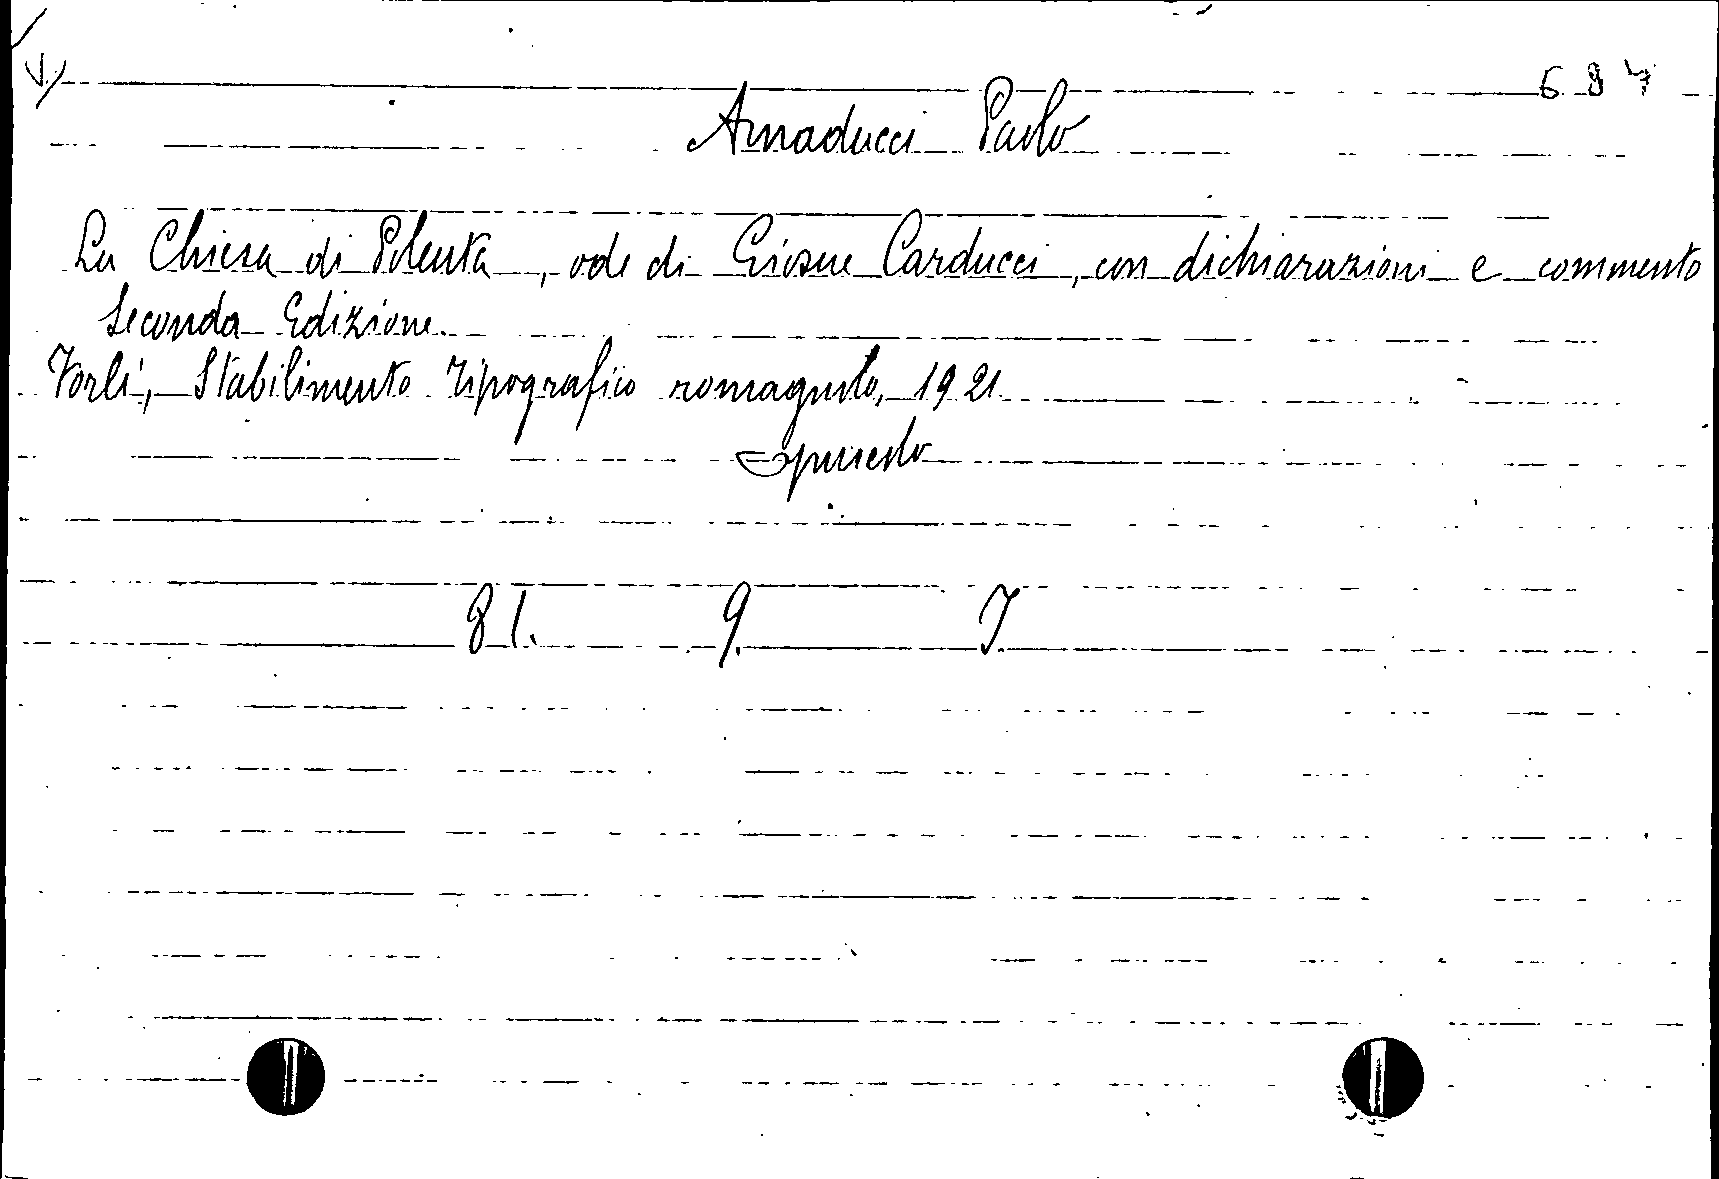 687
Amaducci Paolo
La Chiesa di Polenta, ode di Giosue Carducci, con dichiarazioni e commento
Seconda Edizione.
Forlì, Stabilimento tipografico romagnolo, 1921
Opuscolo
81. 9. 7.